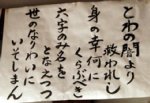 とわの闇より
救われし
身の幸何に
くらぶべき
六字のみ名を
となえつつ
世のなりわいに
いそしまん